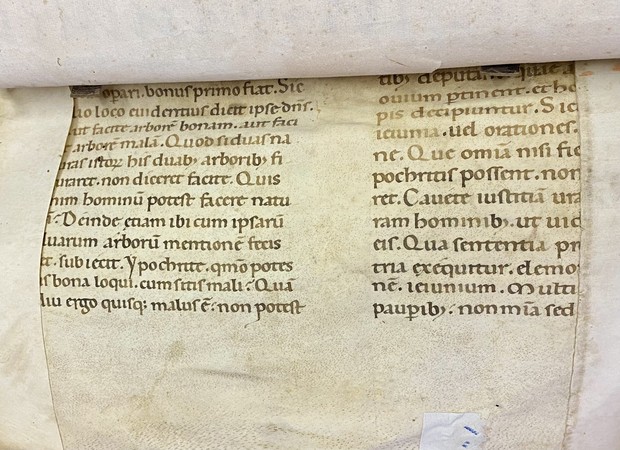 oꝑari. bonus primo fiat. Sic
lio loco euidentius dicit ipse dn̄s.
aut facite arborē bonam. aut faci
arborē mala. Quod si duas na
uras istoꝝ his duab; arborib; fi
uraret. non diceret facite. Quis
nim hominū potest facere natu
Deinde etiam ibi cum ipsarū
uarum arborū mentionē fecis
et. subiecit. Ypochrite. qm̄o potes
is bona loqui. cum sitis mali. Quā
diu ergo quisq; malus ē. non potest
tib; deputan
ouium ꝑtinent. et ho
pis decipiuntur. Sic
ieiunia. uel orationes.
ne. Que om̄ia nisi fie
pochritis possent. non
ret. Cauete iustitiā ura
ram hominib;. ut uid
eis. Qua sententia pr
tria exequitur. elemo
nē. ieiunium. Multi
pauꝑib;. non mīa sed